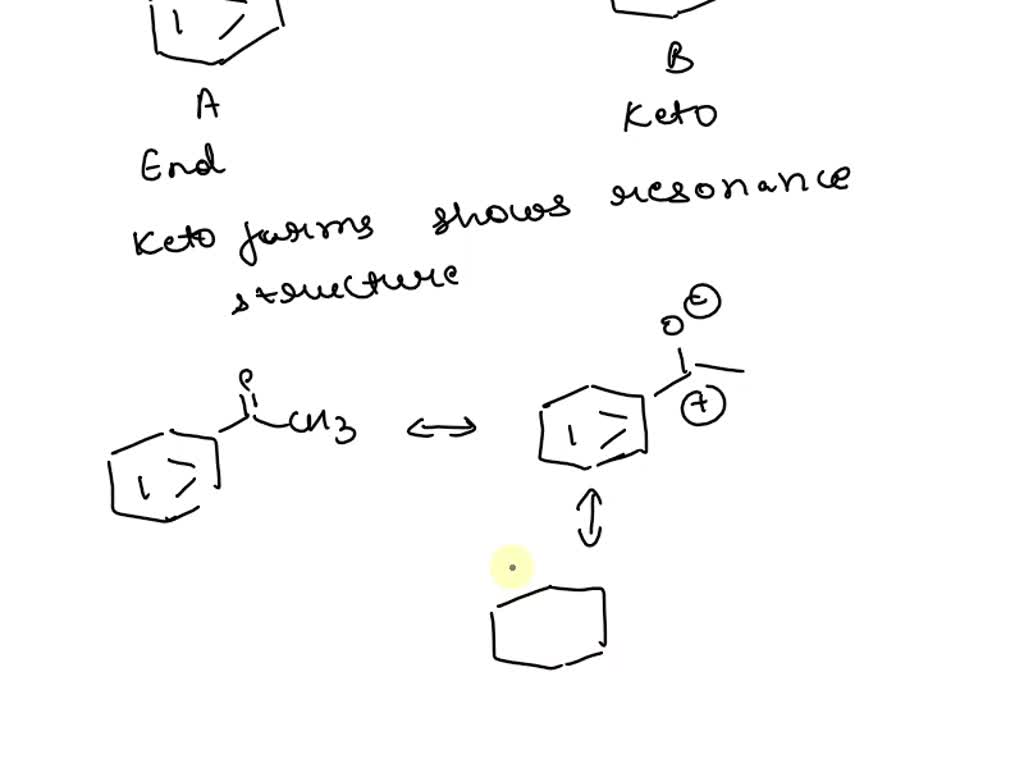 A
B
Enol
Keto
Keto forms shows resonance
structure
O
CH3
O
⊖
⊕